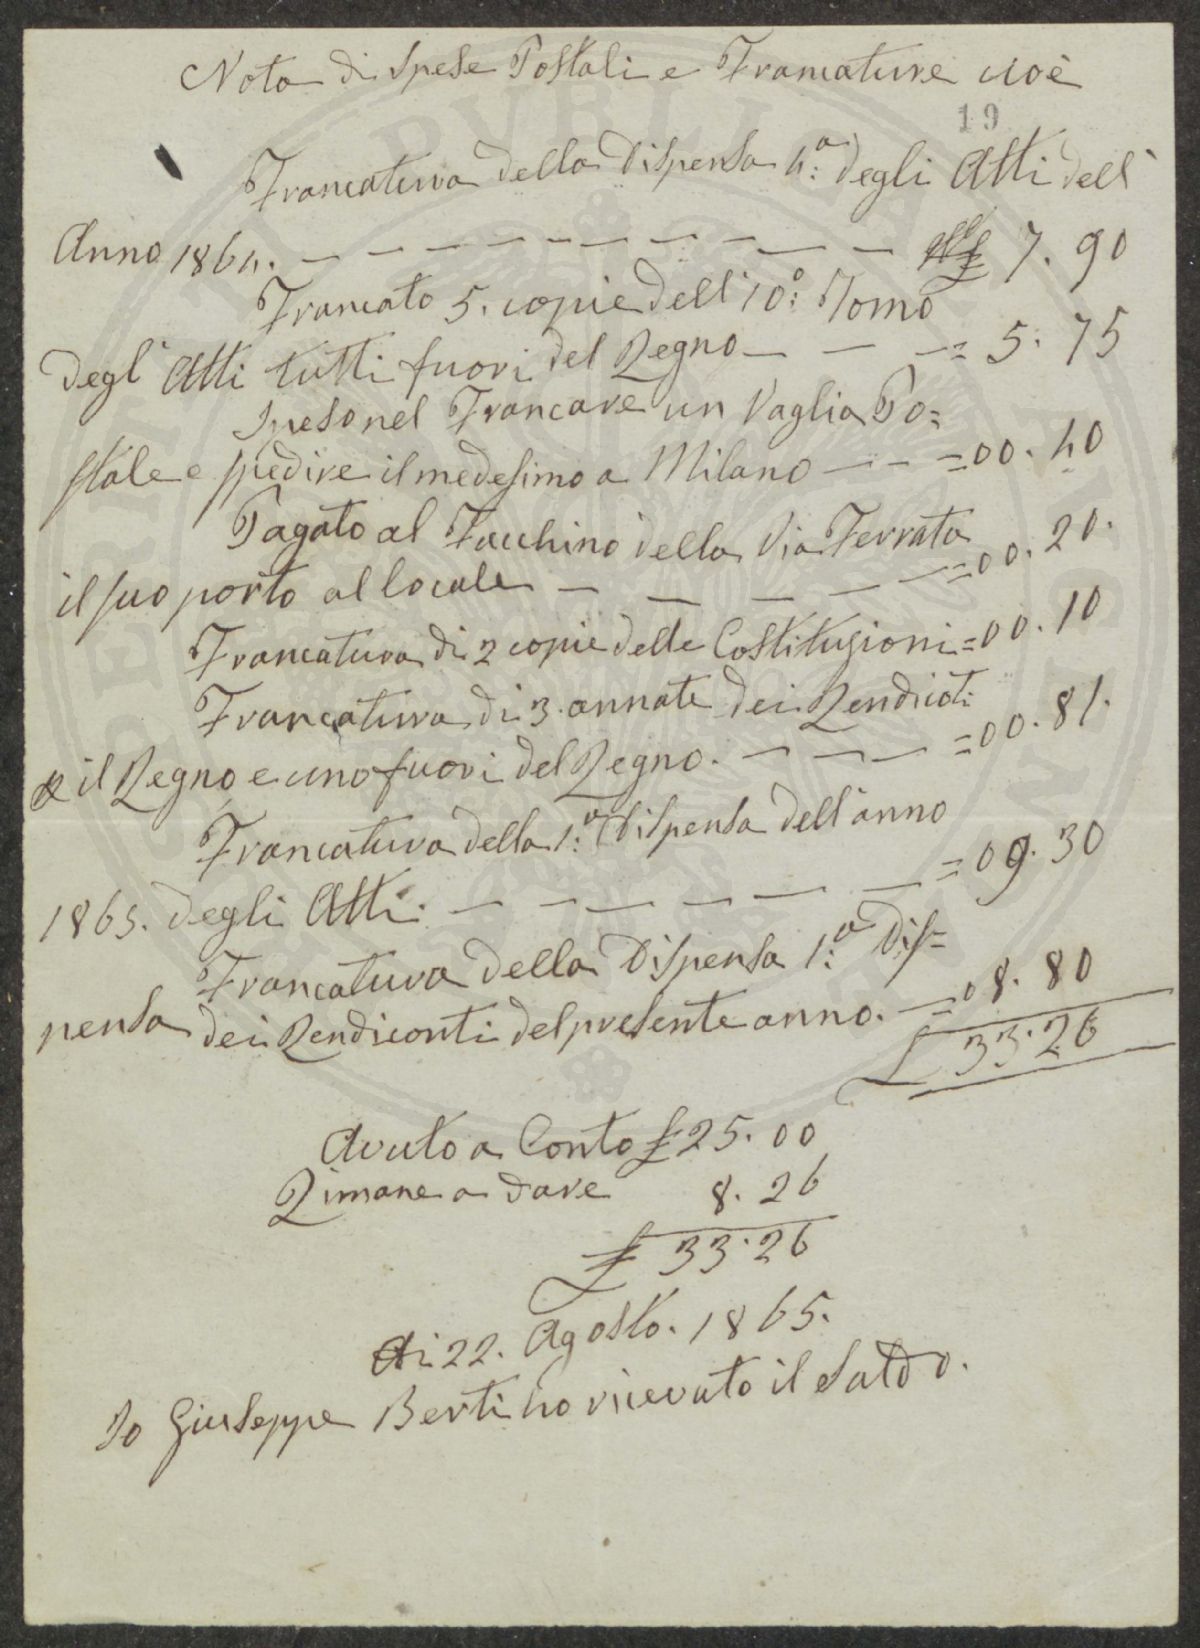 Nota di Spese Postali e Francature cioè
19
Francatura della Dispensa 4:a degli Atti dell'
Anno 1864. — — — — — — — — £ 7. 90
Francato 5. copie dell' 10:o Tomo
degl' Atti tutti fuori del Regno — — — = 5. 75
Speso nel Francare un Vaglia Po=
stale e spedire il medesimo a Milano — — = 00. 40
Pagato al Facchino della Via Ferrata
il suo porto al locale — — — — = 00. 20.
Francatura di 2 copie delle Costituzioni = 00. 10
Francatura di 3. annate dei Rendicoti
il Regno e uno fuori del Regno. — — — = 00. 81.
Francatura della 1:a Dispensa dell'anno
1865. degli Atti. — — — — — — = 09. 30
Francatura della Dispensa 1:a Dis=
pensa dei Rendiconti del presente anno. — = 08. 80
£ 33. 26
Avuto a Conto £ 25. 00
Rimane a dare 8. 26
£ 33. 26
di 22. Agosto. 1865.
Io Giuseppe Berti ho ricevuto il Saldo.